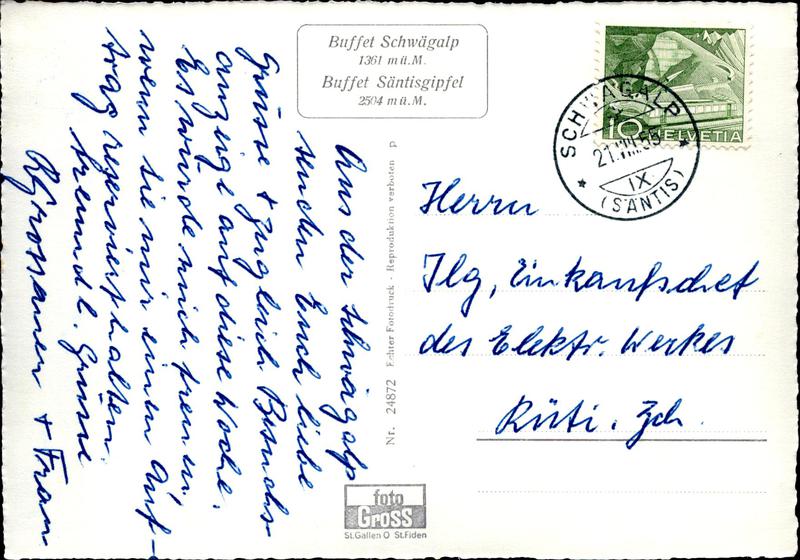 Buffet Schwägalp
1361 m ü.M.
Buffet Säntisgipfel
2504 m ü.M.
10 HELVETIA
SCHWÄGALP
21.VIII.55
IX
(SÄNTIS)
Aus der Schwägalp
senden Euch liebe
Grüsse + zugleich Besuchs-
anzeige auf diese Woche.
Es würde mich freuen,
wenn sie mir einen Auf-
trag reserviert halten.
freundl. Grüsse
+ Frau
Nr. 24872 Echter Fotodruck - Reproduktion verboten p
Herrn
Ilg, Einkaufschef
des Elektr. Werkes
Rüti. Zch.
foto
GROSS
St.Gallen O St.Fiden